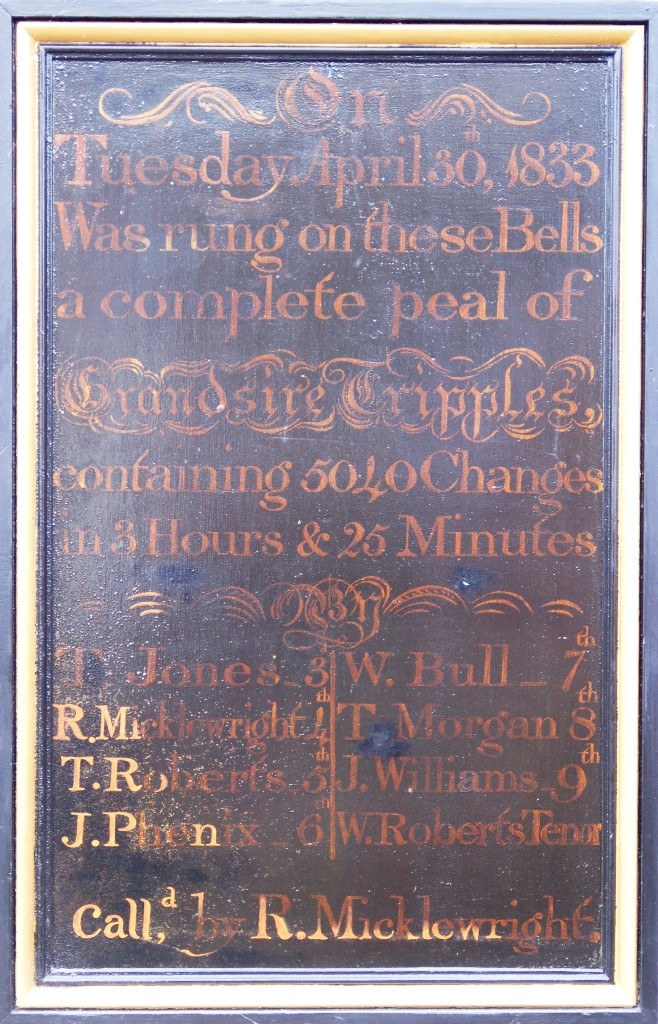 On
Tuesday April 30th, 1833
Was rung on these Bells
a complete peal of
Grandsire Tripples,
containing 5040 Changes
in 3 Hours & 25 Minutes
By
T. Jones 3d W. Bull 7th
R. Micklewright 4th T. Morgan 8th
T. Roberts 5th J. Williams 9th
J. Phenix 6th W. Roberts Tenor
Call,d by R. Micklewright.